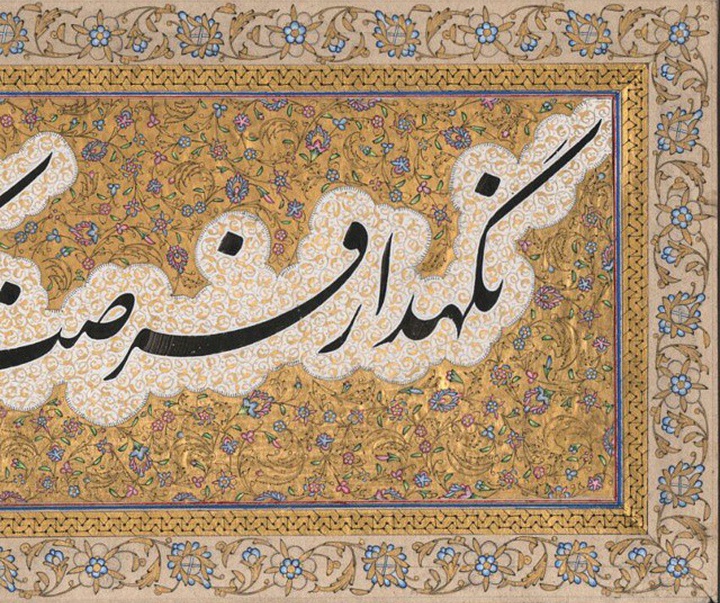 نگهدار فرصت